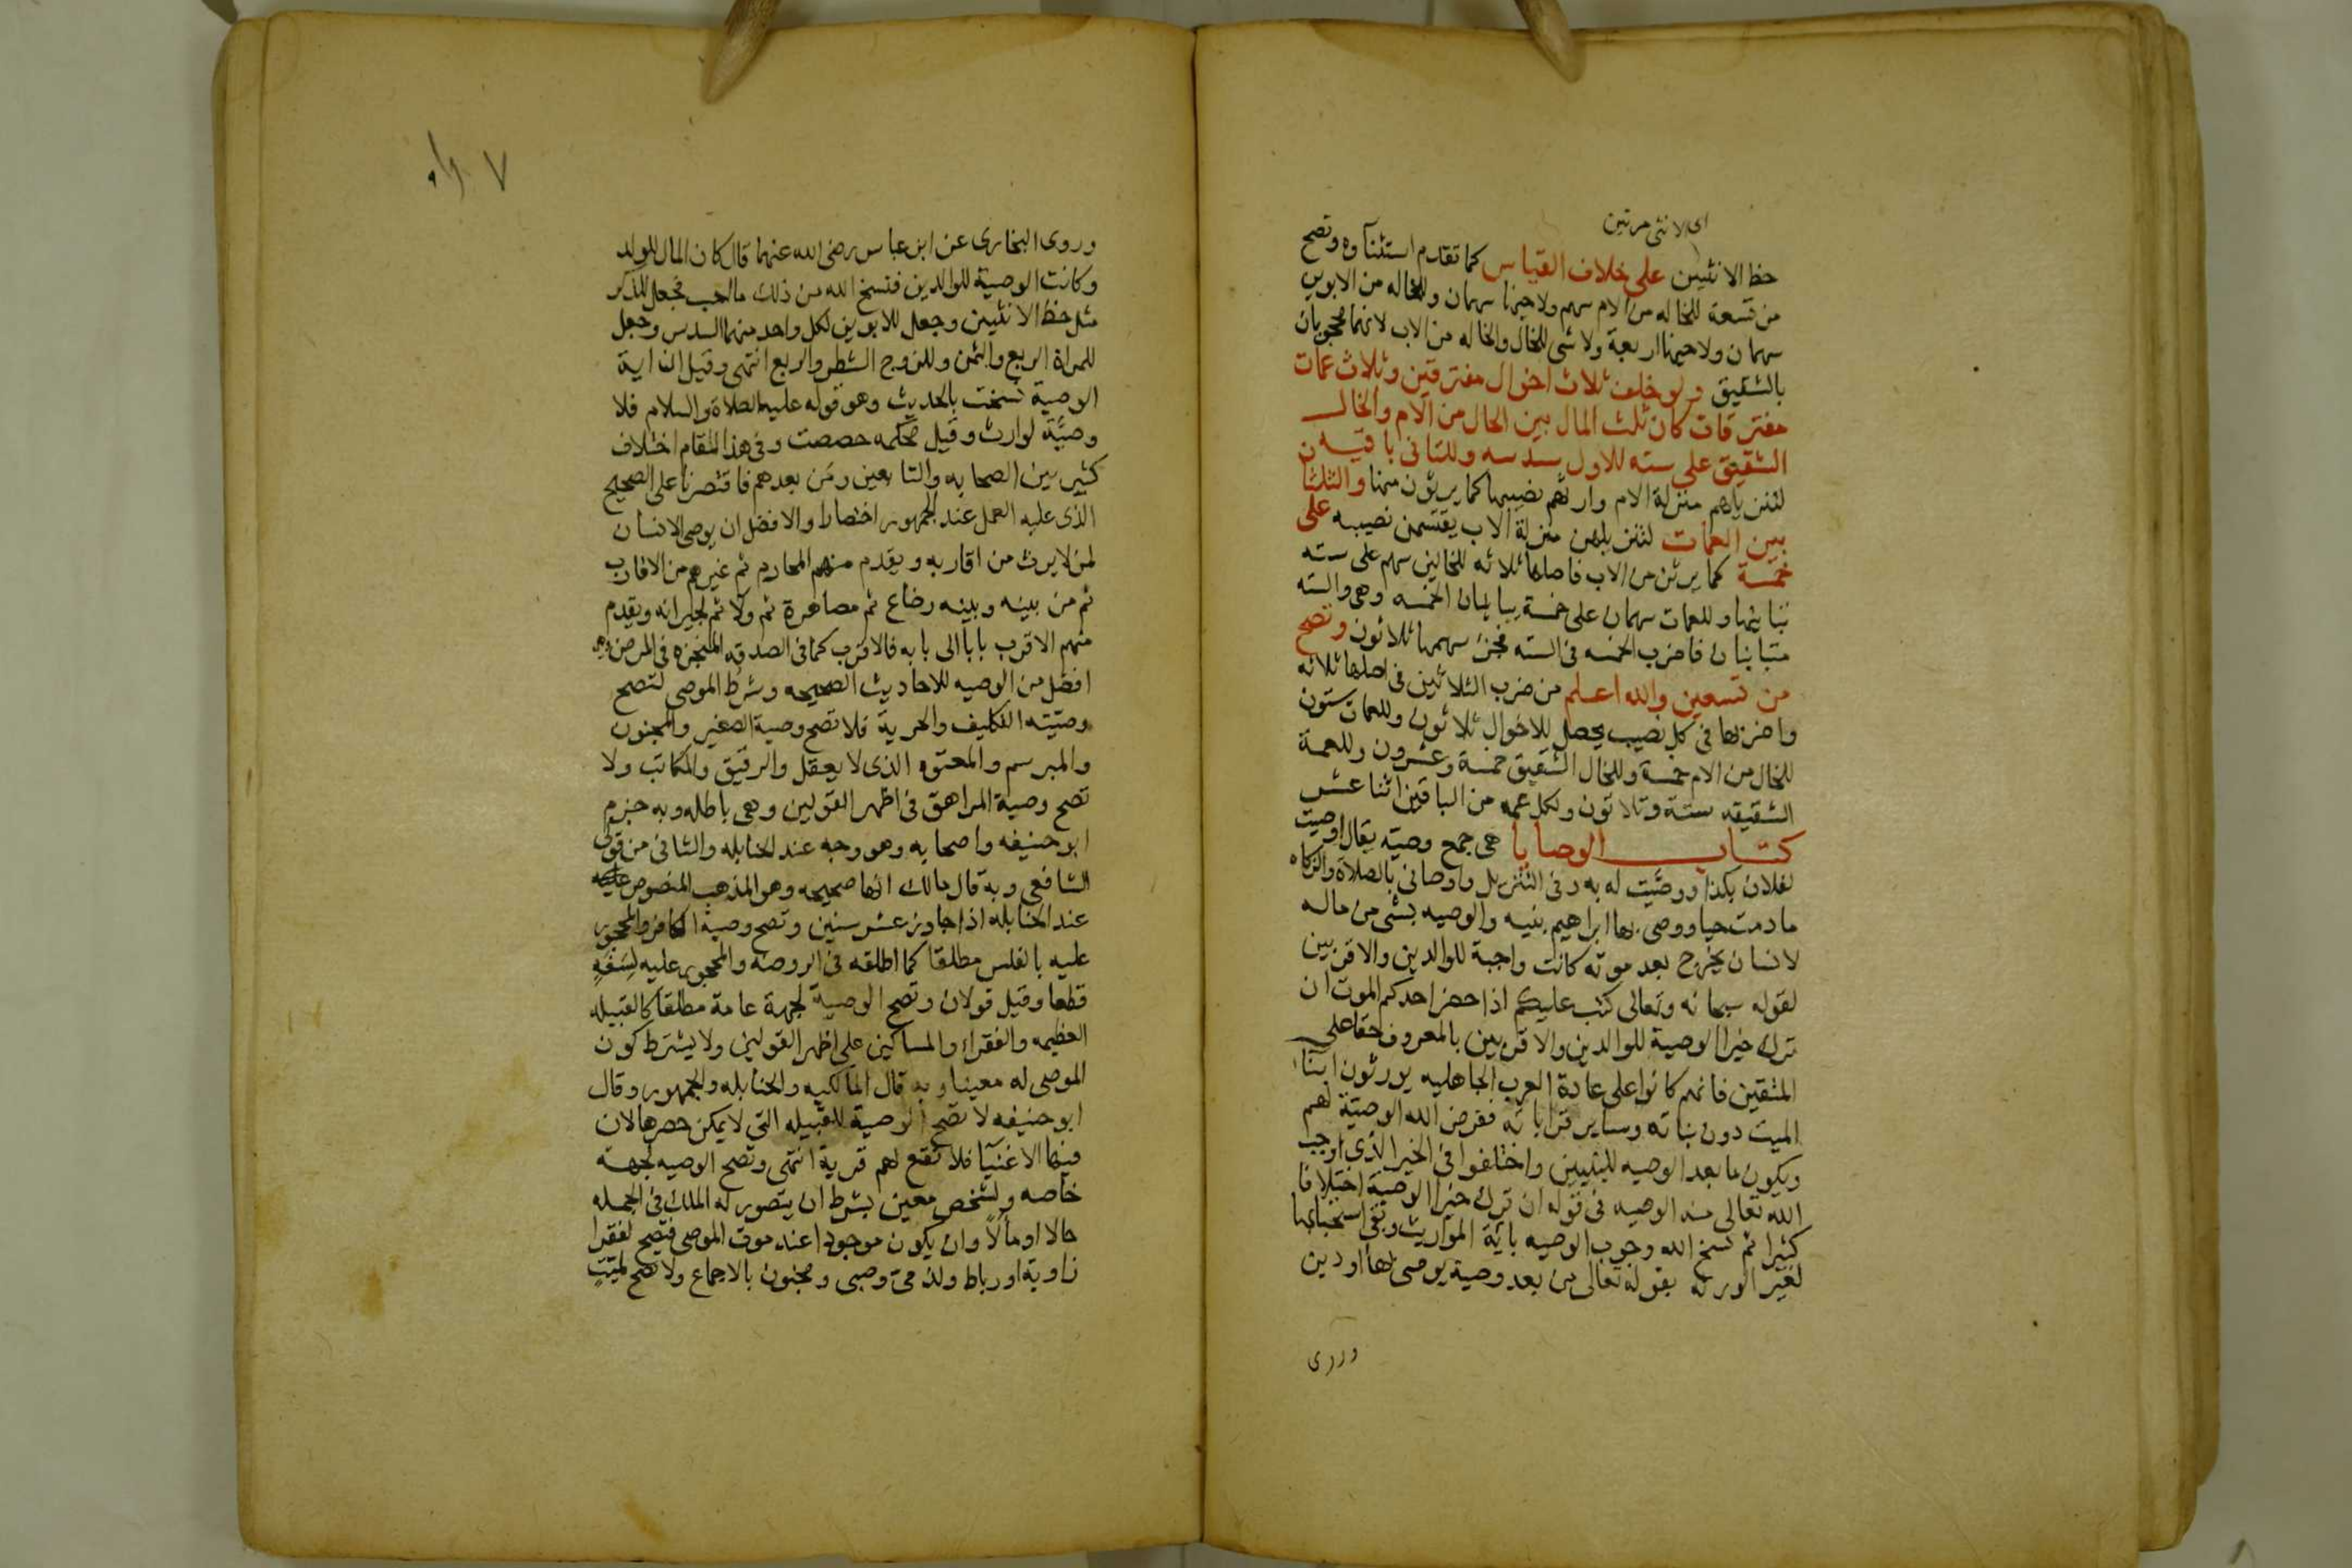 اى الانثى مرتين
حظ الانثيين على خلاف القياس كما تقدم استثناؤه وتصح
من تسعة للخاله من الام سهم ولاخيها سهمان وللخاله من الابوين
سهمان ولاخيها اربعة ولا شى للخال والخاله من الاب لانهما محجوبان
بالشقيق ولو خلف ثلاث اخوال مفترقين وثلاث عمات
مفترقات كان ثلث المال بين الخال من الام والخال
الشقيق على سته للاول سدسه وللثانى باقيه
لتنزيلهم منزلة الام وارثهم نصيبها كما يرثون منها والثلثان
بين العمات لتنزيلهن منزلة الاب يقتسمن نصيبه على
خمسة كما يرثن من الاب فاصلها ثلاثه للخالين سهم على سته
تباينها وللعمات سهمان على خمسة يباينان الخمسه وهى والسته
متباينان فاضرب الخمسه فى السته فجزء سهمها ثلاثون وتصح
من تسعين والله اعلم من ضرب الثلاثين فى اصلها ثلاثه
واضربها فى كل نصيب يحصل للاخوال ثلاثون وللعمات ستون
للخال من الام خمسة وللخال الشقيق خمسة وعشرون وللعمة
الشقيقه ستة وثلاثون ولكل عمه من الباقين اثنا عشر
كتاب الوصايا هى جمع وصيه يقال اوصيت
لفلان بكذا ووصيت له به وفى التنزيل واوصانى بالصلاة والزكاه
ما دمت حيا ووصى بها ابراهيم بنيه والوصيه بشى من ماله
لانسان يخرج بعد موته كانت واجبة للوالدين والاقربين
لقوله سبحانه وتعالى كتب عليكم اذا حضر احدكم الموت ان
ترك خيرا الوصية للوالدين والاقربين بالمعروف حقا على
المتقين فانهم كانوا على عادة العرب الجاهليه يورثون ابنا
الميت دون بناته وساير قراباته ففرض الله الوصية لهم
ويكون ما بعد الوصيه للبنين واختلفوا فى الخير الذى اوجب
الله تعالى منه الوصيه فى قوله ان ترك خيرا الوصية اختلافا
كثيرا ثم نسخ الله وجوب الوصيه باية المواريث وبقى استحبابها
لغير الورثه بقوله تعالى من بعد وصية يوصى بها او دين
وروى
٧
وروى البخارى عن ابن عباس رضى الله عنهما قال كان المال للولد
وكانت الوصية للوالدين فنسخ الله من ذلك ما احب فجعل للذكر
مثل حظ الانثيين وجعل للابوين لكل واحد منهما السدس وجعل
للمراة الربع والثمن وللزوج الشطر والربع انتهى وقيل ان اية
الوصية نسخت بالحديث وهو قوله عليه الصلاة والسلام فلا
وصيّة لوارث وقيل محكمه خصصت وفى هذا المقام اختلاف
كثير بين الصحابه والتابعين ومن بعدهم فاقتصرنا على الصحيح
الذى عليه العمل عند الجمهور اختصارا والافضل ان يوصى الانسان
لمن لا يرث من اقاربه ويقدم منهم المحارم ثم غيرهم من الاقارب
ثم من بينه وبينه رضاع ثم مصاهرة ثم ولا ثم لجيرانه ويقدم
منهم الاقرب بابا الى بابه فالاقرب كما فى الصدقه المنجزه فى المرض وهى
افضل من الوصيه للاحاديث الصحيحه وشرط الموصى لتصح
وصيّته التكليف والحرية فلا تصح وصية الصغير والمجنون
والمبرسم والمعتوه الذى لا يعقل والرقيق والمكاتب ولا
تصح وصية المراهق فى اظهر القولين وهى باطله وبه جزم
ابو حنيفه واصحابه وهو وجه عند الحنابله والثانى من قولى
الشافعى وبه قال مالك انها صحيحه وهو المذهب المنصوص عليه
عند الحنابله اذا جاوز عشر سنين وتصح وصية الكافر والمحجور
عليه بالفلس مطلقا كما اطلقه فى الروضه والمحجور عليه لسفه
قطعا وقيل قولان وتصح الوصية لجهة عامة مطلقا كالقبيله
العظيمه والفقراء والمساكين على اظهر القولين ولا يشترط كون
الموصى له معينا وبه قال المالكيه والحنابله والجمهور وقال
ابو حنيفه لا تصح الوصية للقبيله التى لا يمكن حصرها لان
فيها الاغنيآ فلا تقع لهم قربة انتهى وتصح الوصيه لجهة
خاصه ولشخص معين بشرط ان يتصور له الملك فى الجمله
حالا او مآلاً وان يكون موجودا عند موت الموصى فتصح لفقرا
زاوية او رباط ولذمى وصبى ومجنون بالاجماع ولا تصح لميّت